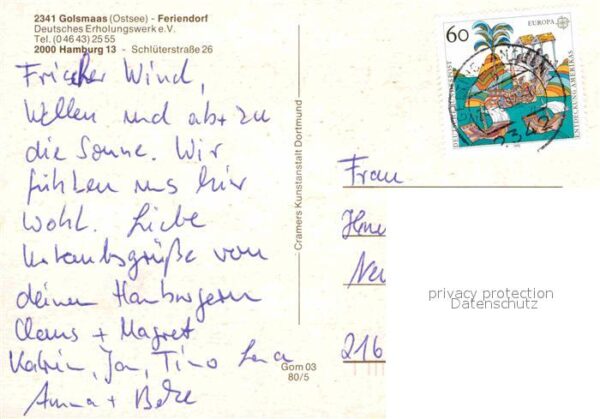 2341 Golsmaas (Ostsee) - Feriendorf
Deutsches Erholungswerk e.V.
Tel. (0 46 43) 25 55
2000 Hamburg 13 - Schlüterstraße 26
Frischer Wind,
Wellen und ab + zu
die Sonne. Wir
fühlen uns hier
wohl. Liebe
Urlaubsgrüße von
deinen Hamburgern
Claus + Magret
Katrin, Jan, Tino Lena
Anna +
Gom 03
80/5
Cramers Kunstanstalt Dortmund
60
EUROPA
DEUTSCHE BUNDESPOST
ENTDECKUNG AMERIKAS
Frau
216
privacy protection
Datenschutz